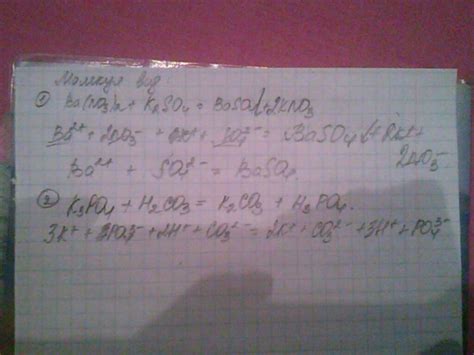 Молекул вид
① Ba(NO3)2 + K2SO4 = BaSO4↓ + 2KNO3
Ba²⁺ + 2NO3⁻ + 2K⁺ + SO4²⁻ = BaSO4↓ + 2K⁺ +
2NO3⁻
Ba²⁺ + SO4²⁻ = BaSO4
② K3PO4 + H2CO3 = K2CO3 + H3PO4.
3K⁺ + PO4³⁻ + 2H⁺ + CO3²⁻ = 2K⁺ + CO3²⁻ + 3H⁺ + PO4³⁻